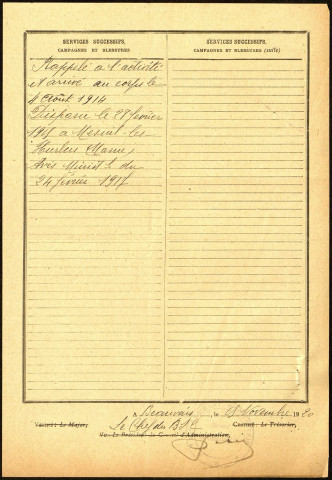 SERVICES SUCCESSIFS,
CAMPAGNES ET BLESSURES
Rappelé à l'activité
et arrivé au corps le
4 Août 1914
Disparu le 28 février
1915 à Mesnil-les
Hurlus (Marne)
Avis Minist. l du
24 février 1917
SERVICES SUCCESSIFS,
CAMPAGNES ET BLESSURES (suite)
A Beauvais, le 15 Novembre 1920
Le Chef du
Le Major, Le Trésorier,
d'Administration,